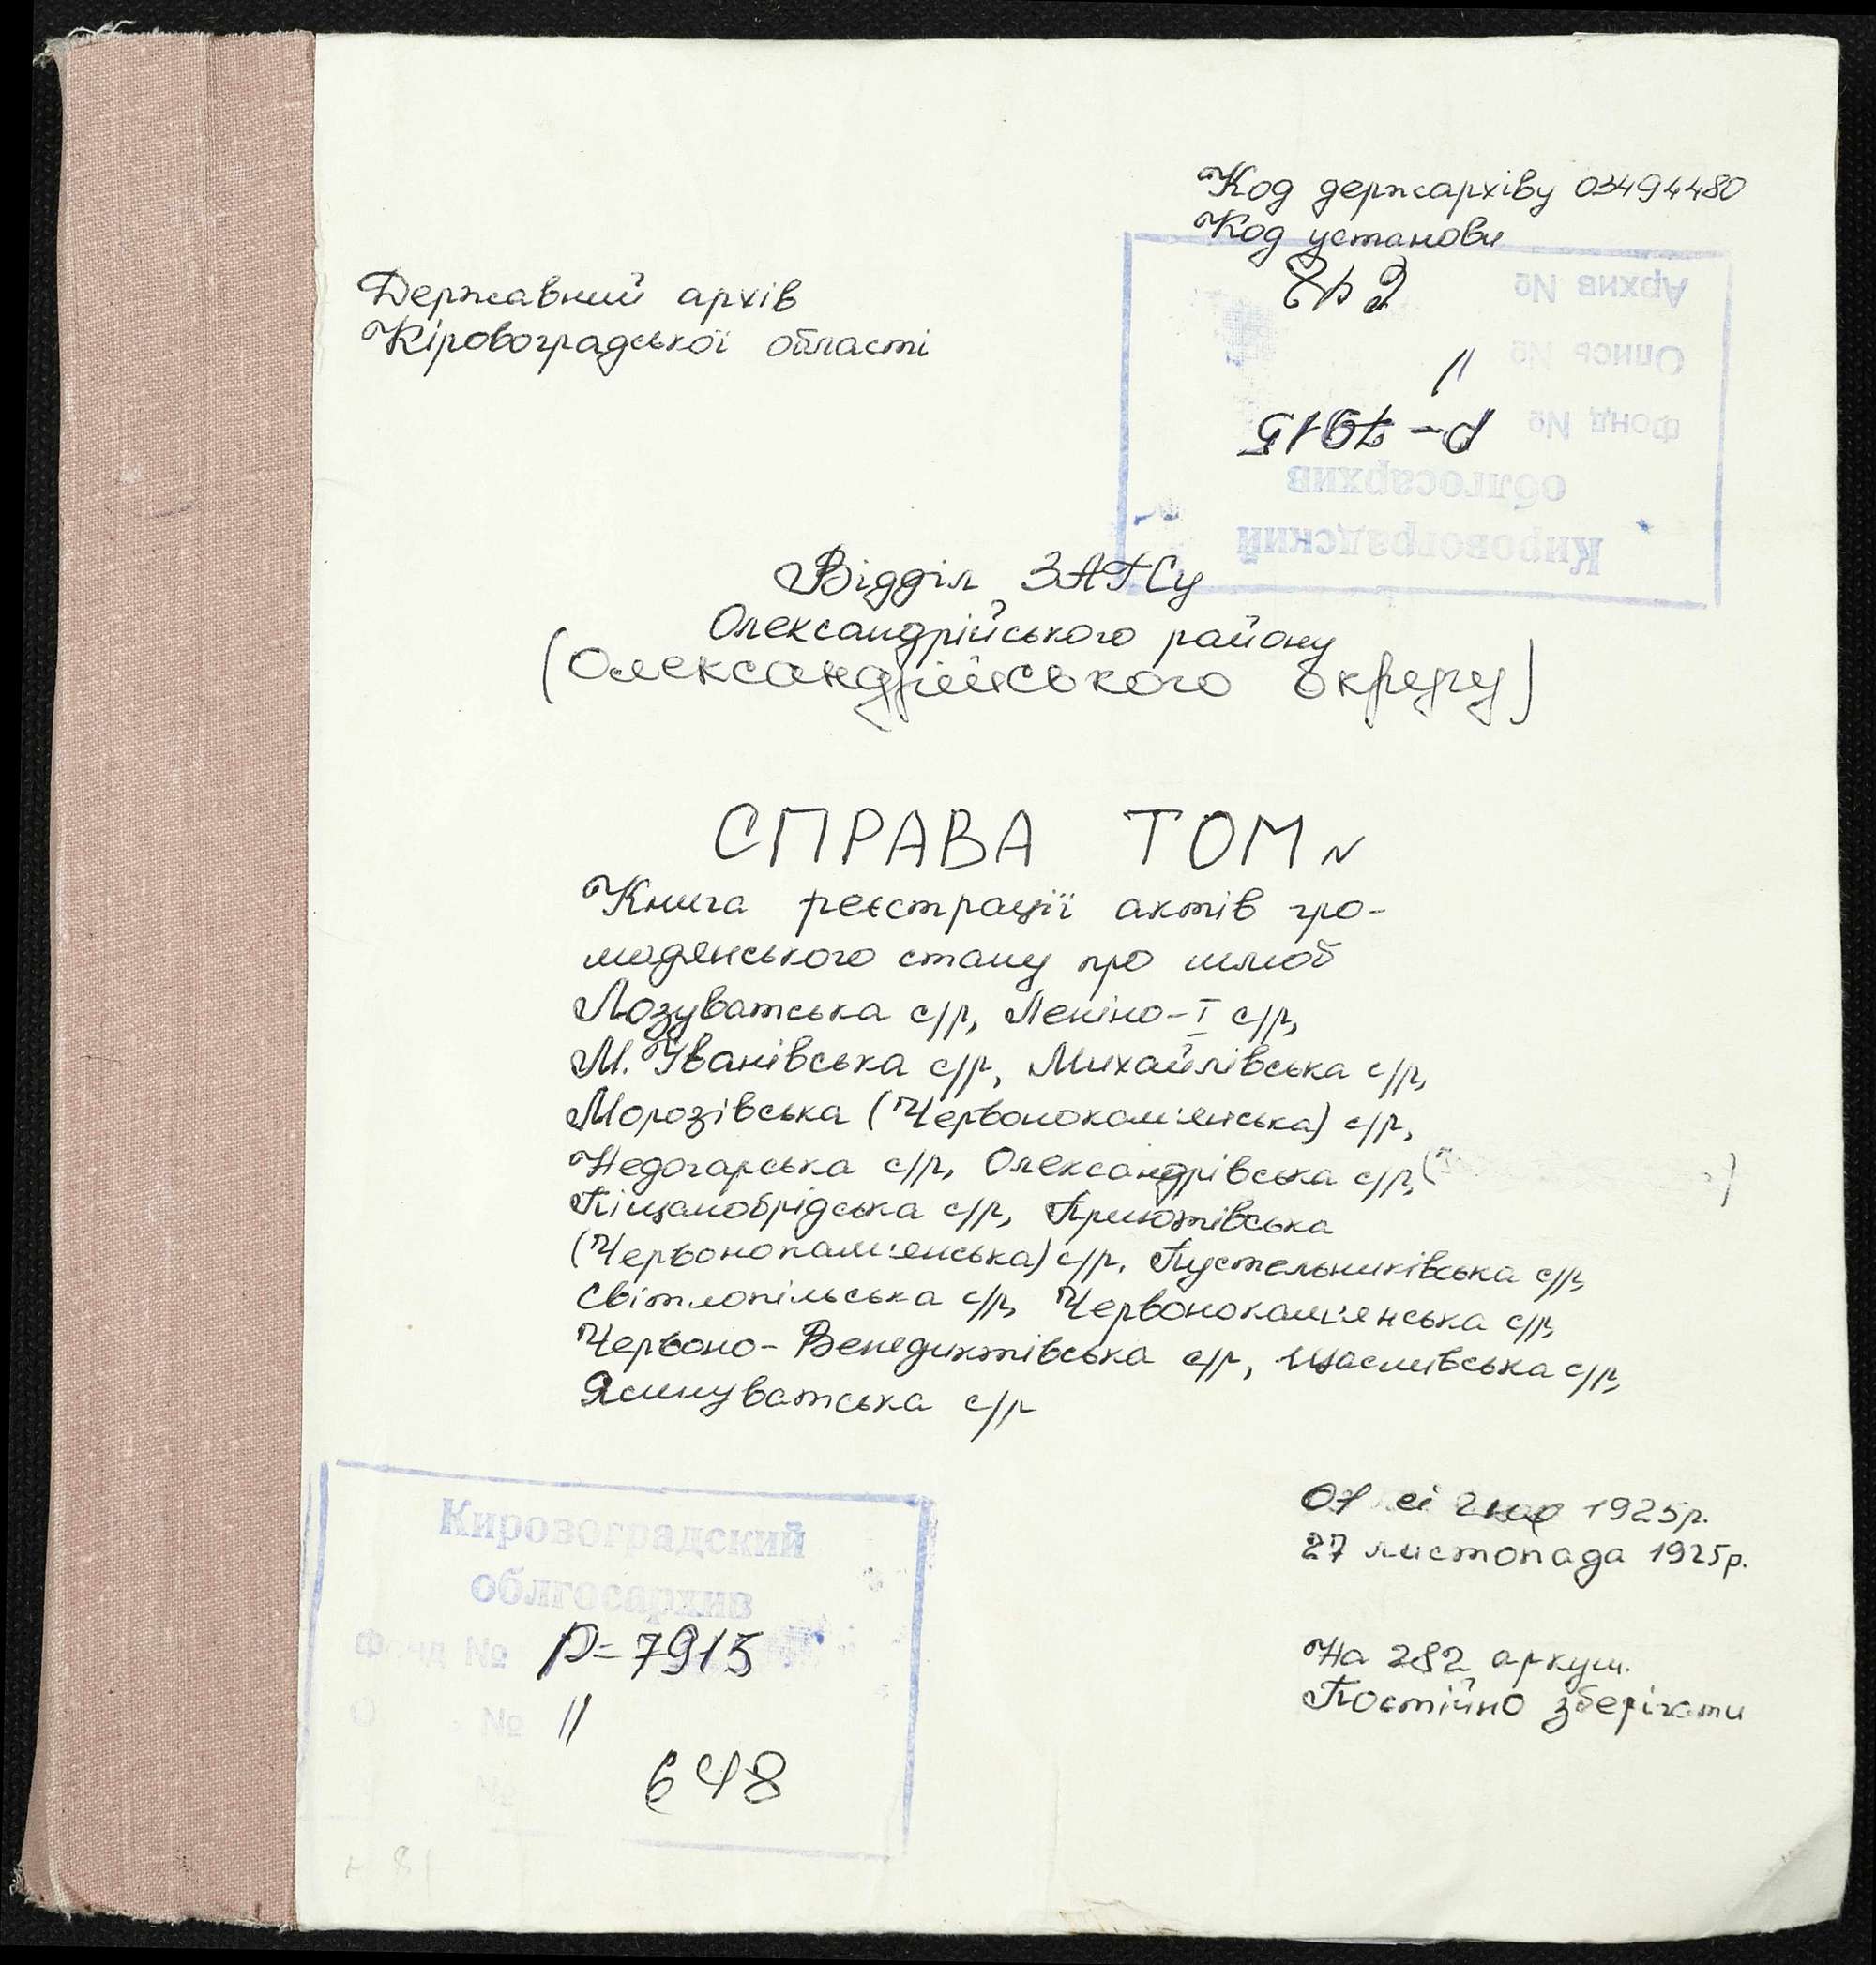 Код держархіву 03494480
Код установи
Державний архів
Кіровоградської області
Кировоградский
облгосархив
Фонд № Р-7915
Опись № 11
Архив №
Відділ ЗАГСу
Олександрійського району
(Олександрійського округу)
СПРАВА ТОМ N
Книга реєстрації актів гро-
мадянського стану про шлюб
Лозуватська с/р, Леніно-I с/р,
М. Іванівська с/р, Михайлівська с/р,
Морозівська (Червонокам'янська) с/р,
Недогарська с/р, Олександрівська с/р,
Піщанобрідська с/р, Приютівська
(Червонокам'янська) с/р, Пустельниківська с/р,
Світлопільська с/р, Червонокам'янська с/р,
Червоно-Венедиктівська с/р, Щасливська с/р,
Ясинуватська с/р
1925р.
27 листопада 1925р.
На 282 аркуш.
Постійно зберігати
Кировоградский
облгосархив
Фонд № Р-7915
№ 11
№ 648